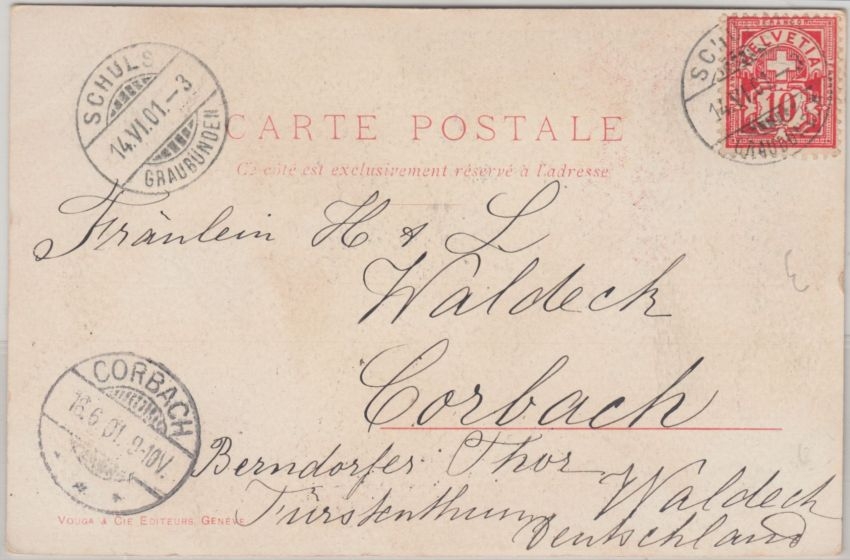 SCHULS
14.VI.01.-3
GRAUBÜNDEN
SCHULS
14.VI.01.-3
GRAUBÜNDEN
HELVETIA
10
CARTE POSTALE
Ce côté est exclusivement réservé à l'adresse
Fräulein H & L
Waldeck
Corbach
Berndorfer Thor
Fürstenthum Waldeck
Deutschland
CORBACH
16.6.01.9-10V.
VOUGA & CIE EDITEURS, GENÈVE